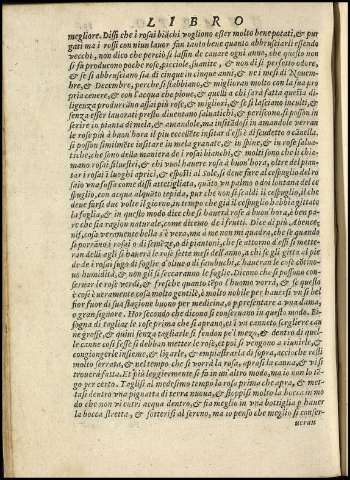 LIBRO
megliore. Dissi che i rosai bianchi vogliono esser molto bene potati, & pur
gati ma i rossi con niun lauor fan tanto bene quanto abbrusciarli essendo
vecchi, non dico che perciò si lassin de cauare ogni anno, che questo non
si fa producono poche rose, picciole, suanite, & non di sì perfetto odore,
& se si abbrusciano sia di cinque in cinque anni, & ne i mesi di Nouem-
bre, & Decembre, perche si stabbiano, & migliorano molto con la sua pro
pria cenere, & con l'acqua che pioue, & quelli a chi sarà fatta questa di-
ligenza produrranno assai più rose, & migliori, & se si lasciano inculti, &
senza esser lauorati presto diuentano saluatichi, & periscono, si posson in
serire in pianta di mela, & amandole, ma inestandosi in amandole verran
le rose più à buon'hora il piu eccellẽte insitar d'essi è di scudetto o cãnella,
si posson similmẽte insitare in mela granate, & in spine, & in rose salua-
tiche, che sono della maniera de i rosai bianchi, & molti sono che li chia-
mano rosai siluestri, & chi vuol hauere rosa à buon'hora, oltre del pian-
tar i rosai i luoghi aprici, & esposti al Sole, si deue fare al cespuglio del ro
saio vna fossa come dissi atteggiata, quasi vn palmo o doi lontana del ce
spuglio, con acqua alquanto tepida, pur che non si scaldi il cespuglio, il che
deue farsi due volte il giorno, in tempo che già il cespuglio habbia gittato
la foglia, & in questo modo dice che si hauerà rose à buon'hora, è ben pa-
re che sia ragion naturale, come dicemo de i frutti. Dice di più Abence-
nif, cosa veramente bella s'è vera, ma à me non mi quadra, che se quando
si porranno i rosai o di semẽza, o di piantoni, che se attorno d'essi si mette-
ran delli agli si hauerà le rose sette mesi dell'anno, a chi se gli gitta al pie
de de i rosai sugo di foglie d'oliuo o di sambuchi, hauerãn le cose cõtinuo-
no humidità, & non gli si seccaranno le foglie. Dicono che si possono con-
seruar le rose verdi, & fresche quanto tẽpo l'huomo vorrà, & se questo
è così è veramente cosa molto gentile, è molto nobile per hauersi vn sì bel
fior fuor di sua stagione buono per medicina, o presentare a vna dama,
o gran signore. Hor secondo che dicono si conseruano in questo modo. Bi-
sogna di tagliar le rose prima che si aprano, et in vn canneto scegliere can
ne grosse, & quiui senza tagliarle si fendon pel mezo, & dentro di quel-
le canne così fesse si debbon metter le rose, et poi si vengono a riunirle, &
congiongerle insieme, & ligarle, & empiastrarla di sopra, accioche resti
molto serrata, & nel tempo che si vorrà la rosa, aprasi la canna, & vi si
trouerà fatta. Et più leggiermente si fa in vn'altro modo, ma io non lo tẽ-
go per certo. Taglisi al medesimo tempo la rosa prima che apra, & met-
tasi dentro vna pignatta di terra nuoua, & stoppisi molto la bocca in mo
do che non vi entri acqua dentro, & sia meglio in vna bottiglia p hauer
la bocca stretta, & sotterisi al sereno, ma io penso che meglio si conser-
ueran